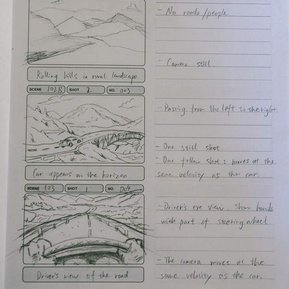 - No roads/people
- Camera still
Rolling hills in rural landscape
SCENE SHOT 2 NO.
- Passing from the left to the right
- One still shot
- One follow shot : moves at the
same velocity as the car.
Car appears on the horizon
SCENE SHOT 1 NO.
- Driver's eye view. Show hands
with part of steering wheel
- The camera moves at the
same velocity as the car.
Driver's view of the road